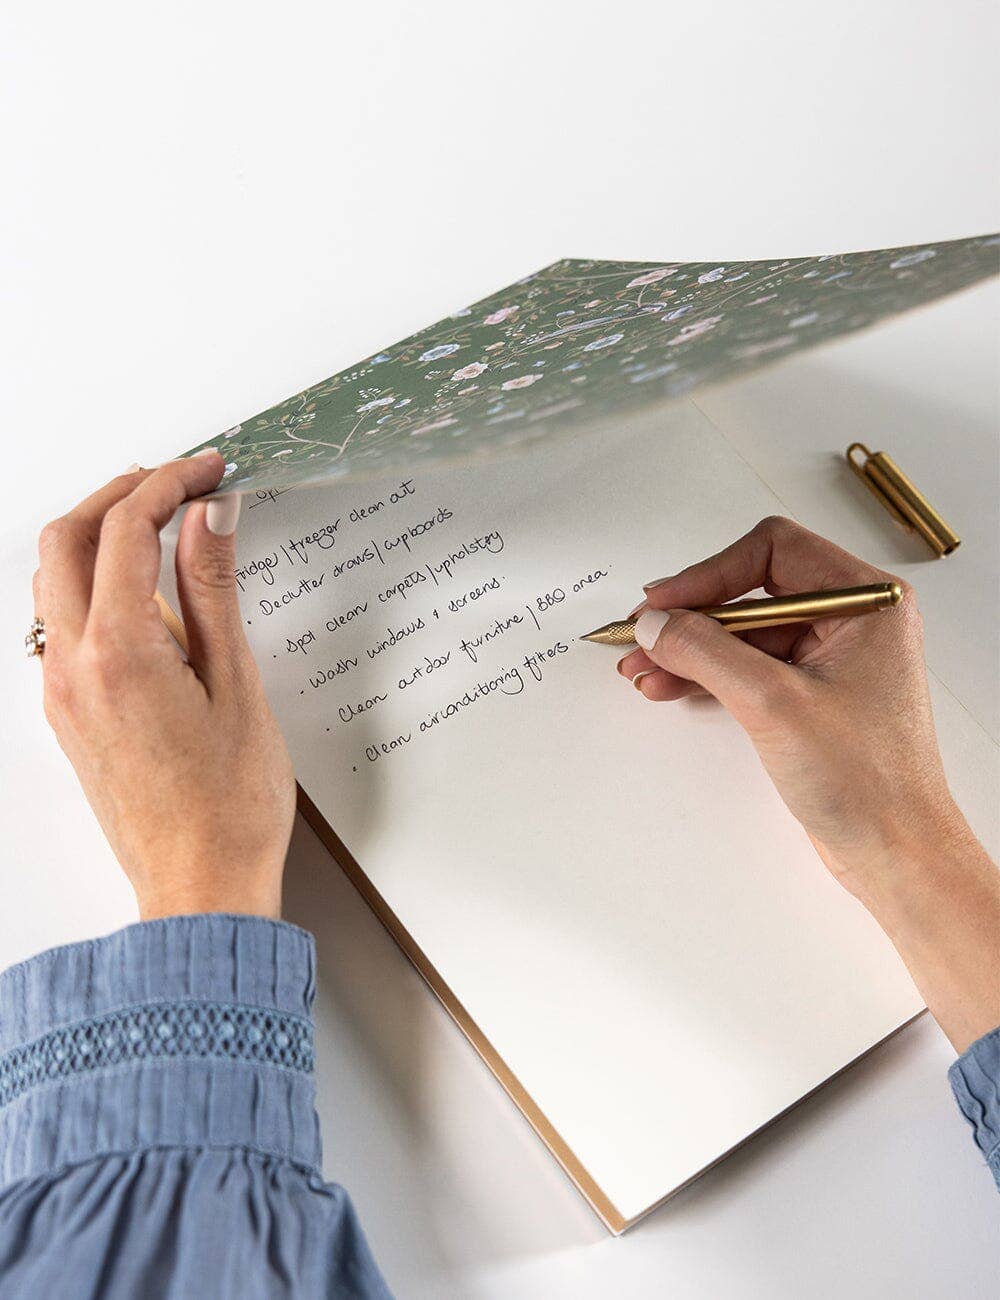 Fridge / freezer clean out
• Declutter draws / cupboards
• Spot clean carpets / upholstery
• Wash windows & screens.
• Clean outdoor furniture / BBQ area.
• Clean airconditioning filters.